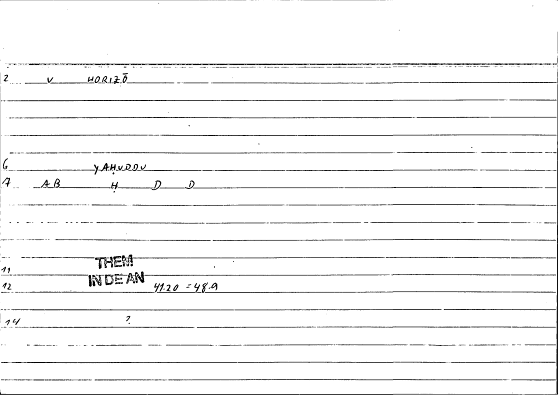 2 v HORIZŌ
6 YAḤUDDU
7 AB Ḥ D D
11 THEM
IN DE AN
12 41.20 = 48.9
14 ?